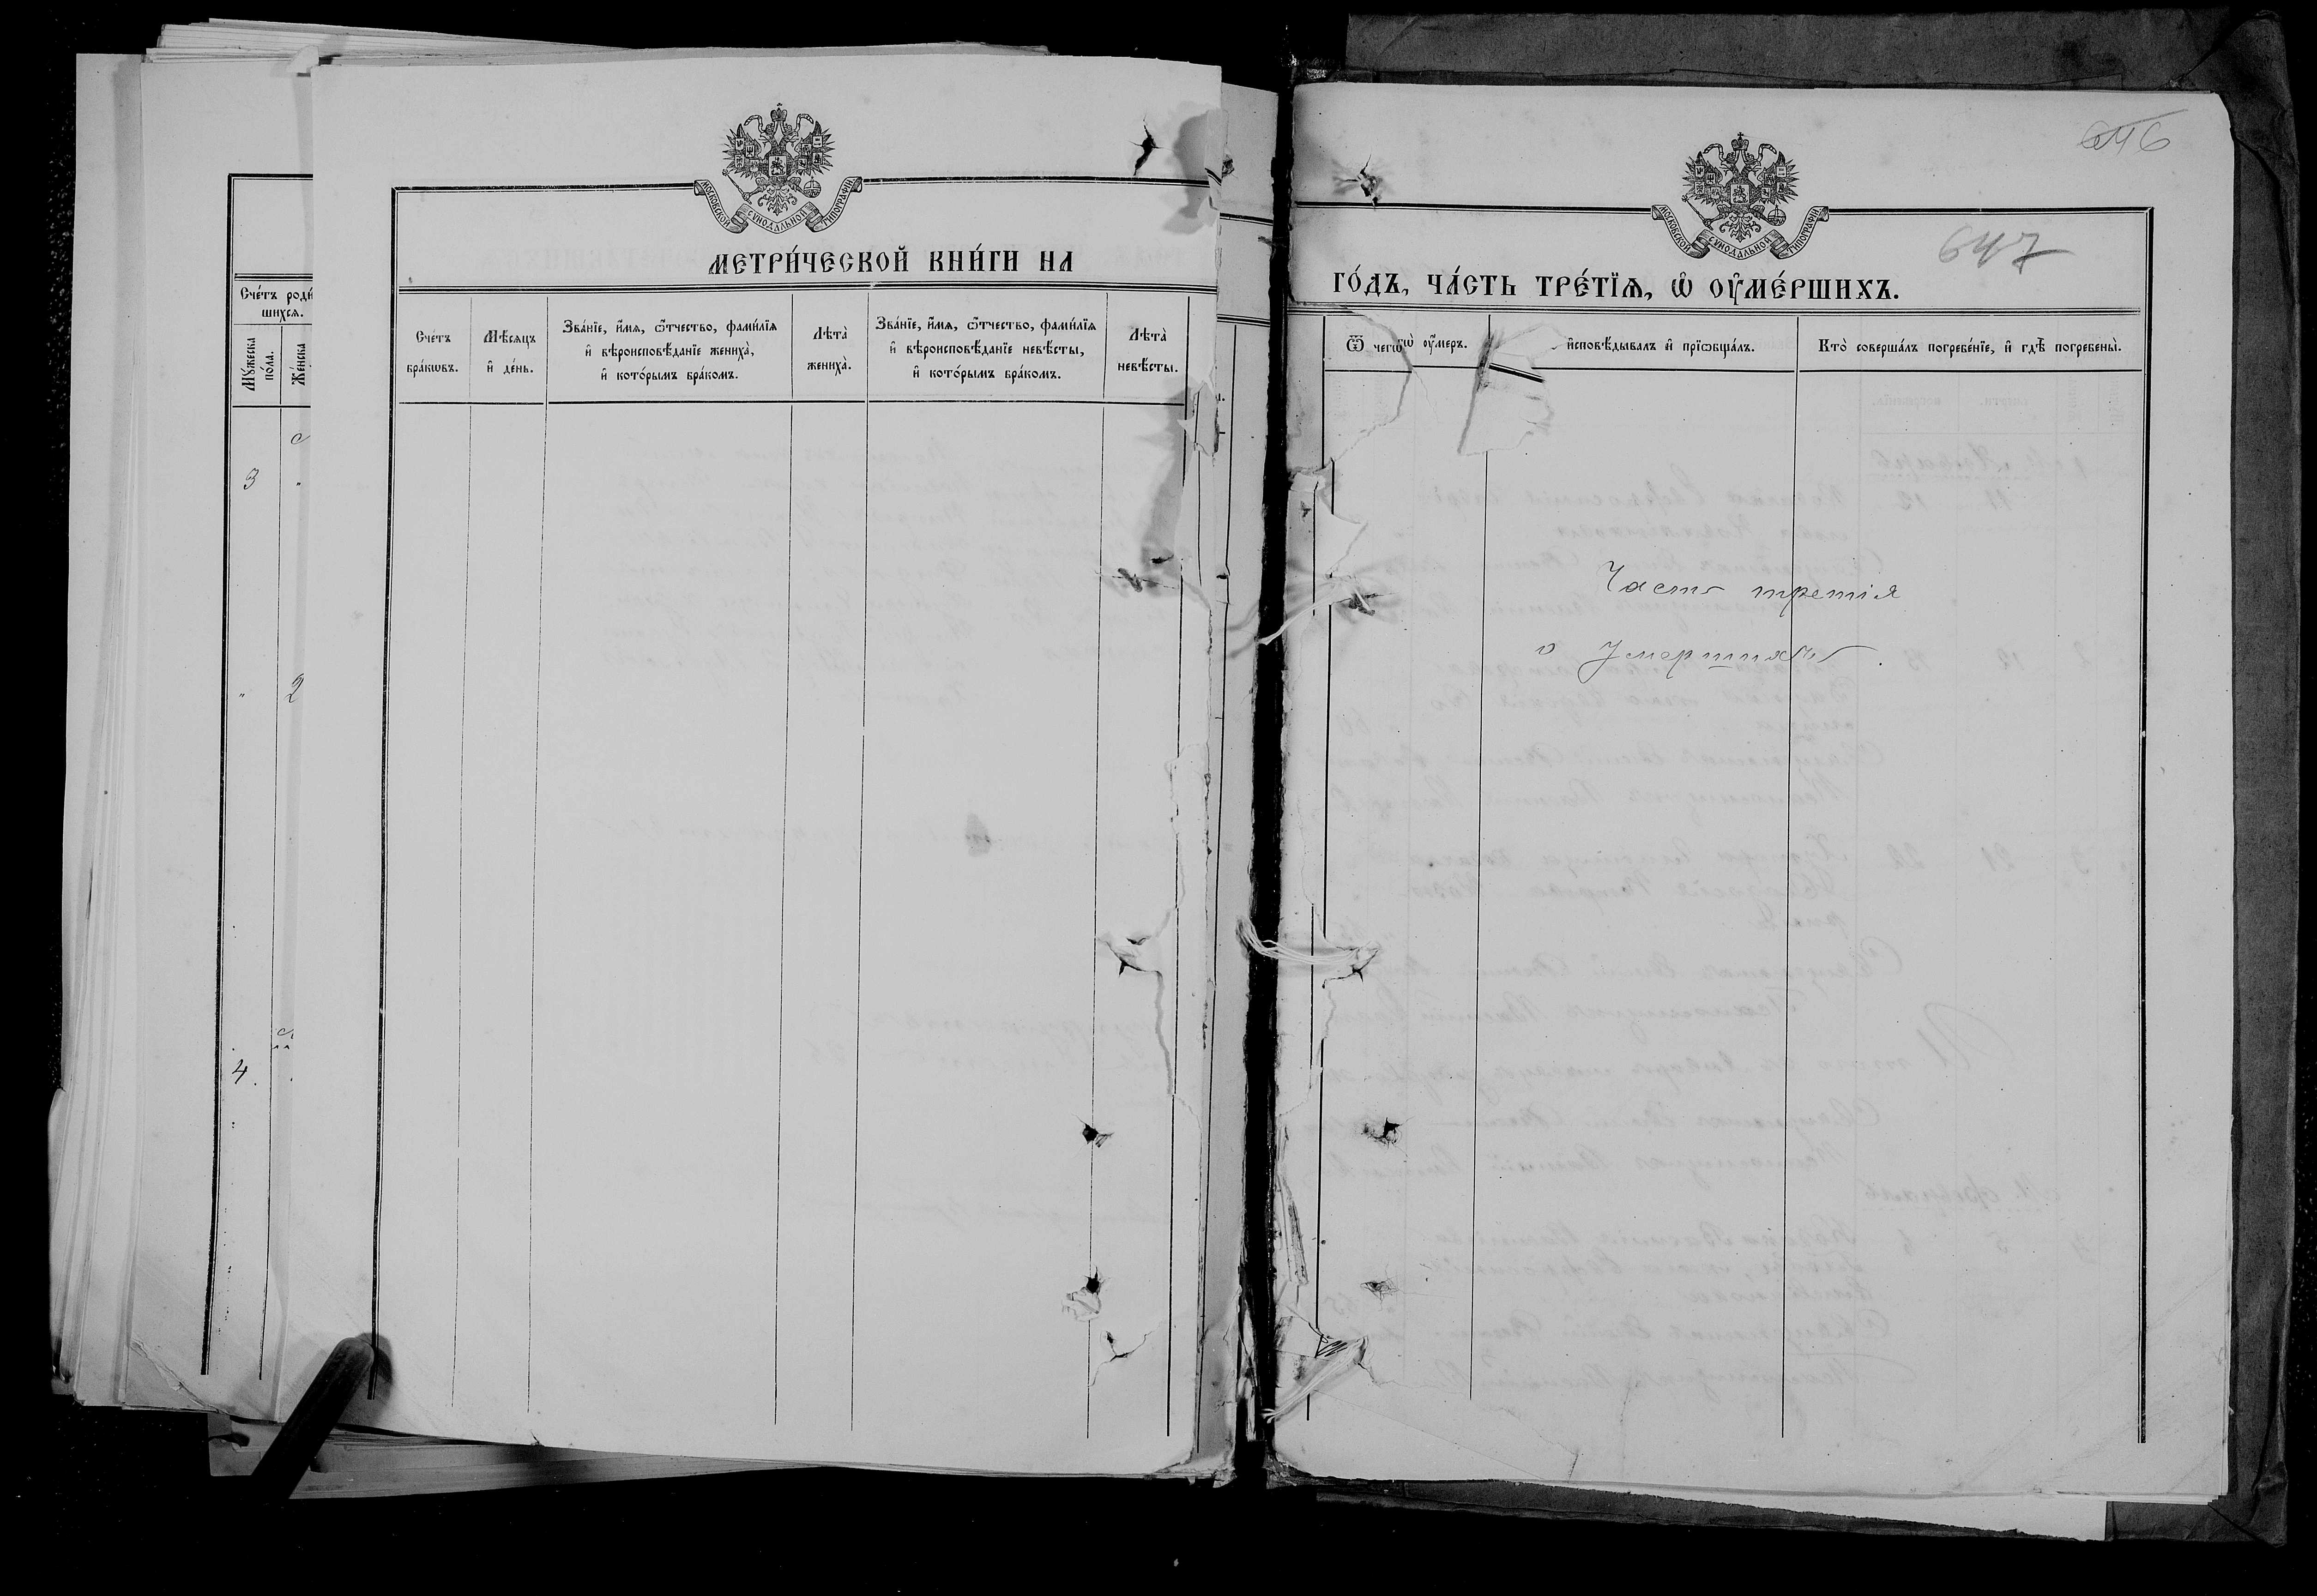 Сче́тъ роди́
шихсѧ.
Мꙋ́жеска
по́ла.
Же́нска
3
"
"
2
4.
МОСКОВСКОЙ СѴНОДАЛЬНОЙ ТИПОГРАФІИ
МЕТРИ́ЧЕСКОЙ КНИ́ГИ НА
Сче́тъ
бра́кѡвъ.
Мѣ́сѧцъ
и҆ де́нь.
Зва́нїе, и҆́мѧ, ѻ҆́тчество, фами́лїѧ
и҆ вѣроисповѣ́данїе жениха̀,
и҆ кото́рымъ бра́комъ.
Лѣта̀
жениха̀.
Зва́нїе, и҆́мѧ, ѻ҆́тчество, фами́лїѧ
и҆ вѣроисповѣ́данїе невѣ́сты,
и҆ кото́рымъ бра́комъ.
Лѣта̀
невѣ́сты.
646
647
МОСКОВСКОЙ СѴНОДАЛЬНОЙ ТИПОГРАФІИ
ГО́ДЪ, ЧА́СТЬ ТРЕ́ТЇѦ, Ѡ҆ ОУ҆МЕ́РШИХЪ.
Ѿ чегѡ̀ оу҆́меръ.
и҆сповѣ́дывалъ и҆ прїѡбща́лъ.
Кто̀ соверша́лъ погребе́нїе, и҆ гдѣ̀ погребены̀.
Часть третія
о Умершихъ.